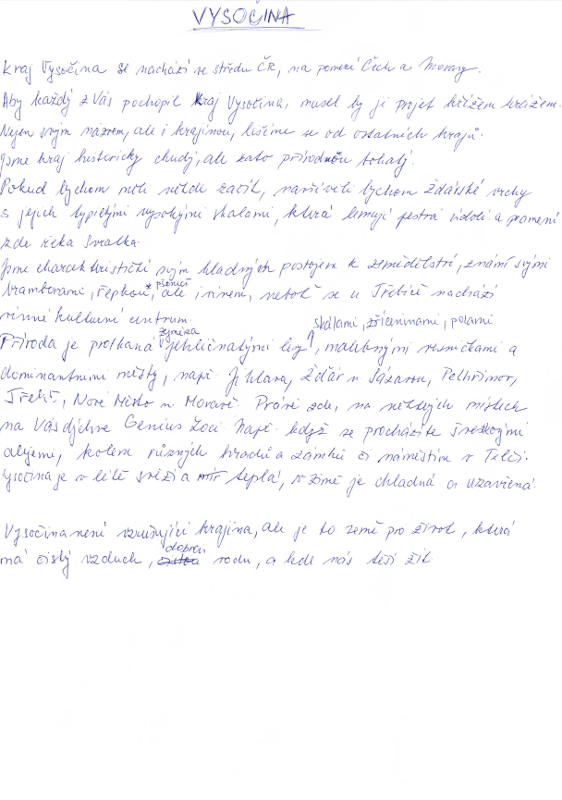 VYSOČINA
Kraj Vysočina se nachází ve středu ČR, na pomezí Čech a Moravy.
Aby každý z Vás pochopil Kraj Vysočina, musel by ji projet křížem krážem.
Nejen svým názvem, ale i krajinou, lišíme se od ostatních krajů.
Jsme kraj historicky chudý, ale zato přírodou bohatý.
Pokud bychom měli někde začít, navštívili bychom Žďárské vrchy
s jejich typickými vysokými skalami, která lemují pestrá údolí a pramení
zde řeka Svratka.
Jsme charakterističtí svým kladným postojem k zemědělství, známí svými
bramborami, řepkou, pšenicí, ale i vínem, neboť se v Třebíči nachází
vinné kulturní centrum.
Příroda je protkaná zejména jehličnatými lesy, skálami, zříceninami, polami, malebnými vesničkami a
dominantními městy, např. Jihlava, Žďár n Sázavou, Pelhřimov,
Třebíč, Nové Město n Moravě. Právě zde, na některých místech
na Vás dýchne Genius Loci. Např. když se procházíte švestkovými
alejemi, kolem různých hradů a zámků či náměstím v Telči.
Vysočina je v létě svěží a teplá, v zimě je chladná a uzavřená.
Vysočina není vzrušující krajina, ale je to země pro život, která
má čistý vzduch, dobrou vodu, a kde nás těší žít